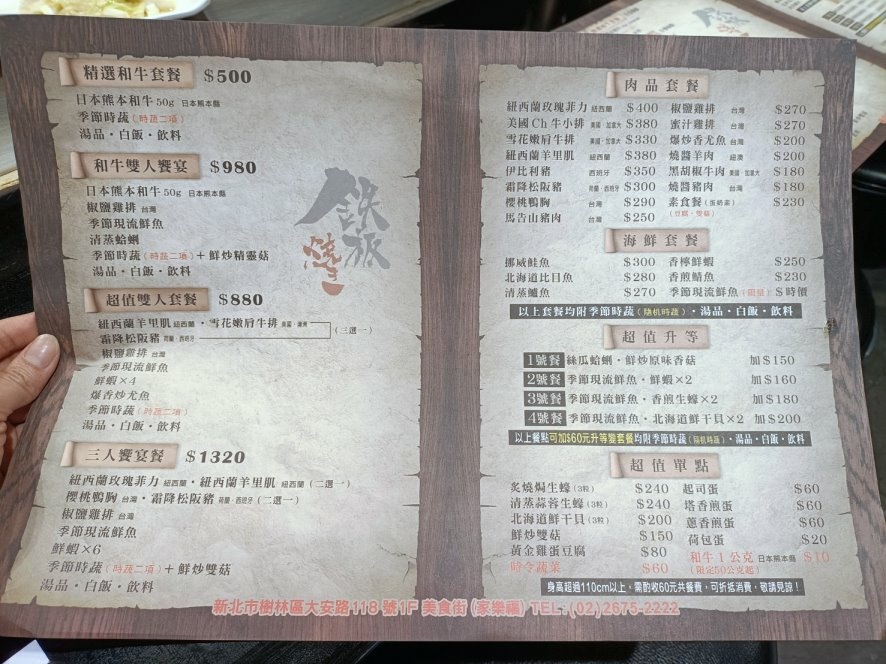 精選和牛套餐 $500
日本熊本和牛50g 日本熊本縣
季節時蔬(時蔬二項)
湯品・白飯・飲料
和牛雙人饗宴 $980
日本熊本和牛50g 日本熊本縣
椒鹽雞排 台灣
季節現流鮮魚
清蒸蛤蜊
季節時蔬(時蔬二項)+鮮炒精靈菇
湯品・白飯・飲料
超值雙人套餐 $880
紐西蘭羊里肌 紐西蘭・雪花嫩肩牛排
霜降松阪豬 荷蘭・西班牙 (三選一)
椒鹽雞排 台灣
季節現流鮮魚
鮮蝦×4
爆香炒尤魚
季節時蔬(時蔬二項)
湯品・白飯・飲料
三人饗宴餐 $1320
紐西蘭玫瑰菲力 紐西蘭・紐西蘭羊里肌 紐西蘭(二選一)
櫻桃鴨胸 台灣・霜降松阪豬 荷蘭・西班牙(二選一)
椒鹽雞排 台灣
季節現流鮮魚
鮮蝦×6
季節時蔬(時蔬二項)+鮮炒雙菇
湯品・白飯・飲料
鉄板燒
肉品套餐
紐西蘭玫瑰菲力 紐西蘭 $400 椒鹽雞排 台灣 $270
美國Ch牛小排 美國・加拿大 $380 蜜汁雞排 台灣 $270
雪花嫩肩牛排 美國・加拿大 $330 爆炒香尤魚 台灣 $200
紐西蘭羊里肌 紐西蘭 $380 燒醬羊肉 紐澳 $200
伊比利豬 西班牙 $350 黑胡椒牛肉 美國・加拿大 $180
霜降松阪豬 荷蘭・西班牙 $300 燒醬豬肉 台灣 $180
櫻桃鴨胸 台灣 $290 素食餐(蛋奶素) $230
馬告山豬肉 台灣 $250 (豆腐・雙菇)
海鮮套餐
挪威鮭魚 $300 香檸鮮魚 $250
北海道比目魚 $280 香煎鯖魚 $230
清蒸鱸魚 $270 季節現流鮮魚(限量) $時價
以上套餐均附季節時蔬(隨机時蔬)・湯品・白飯・飲料
超值升等
1號餐 絲瓜蛤蜊・鮮炒原味香菇 加$150
2號餐 季節現流鮮魚・鮮蝦×2 加$160
3號餐 季節現流鮮魚・香煎生蠔×2 加$180
4號餐 季節現流鮮魚・北海道鮮干貝×2 加$200
以上餐點可加$60元升等變套餐均附季節時蔬(隨机時蔬)・湯品・白飯・飲料
超值單點
炙燒焗生蠔(3粒) $240 起司蛋 $60
清蒸蒜蓉生蠔(3粒) $240 塔香煎蛋 $60
北海道鮮干貝(3粒) $200 蔥香煎蛋 $60
鮮炒雙菇 $150 荷包蛋 $20
黃金雞蛋豆腐 $80 和牛1公克 日本熊本縣 $10
時令蔬菜 $60 (限定50公克起)
身高超過110cm以上,需酌收60元共餐費,可折抵消費,敬請見諒!
新北市樹林區大安路118號1F 美食街(家樂福) TEL:(02)2675-2222